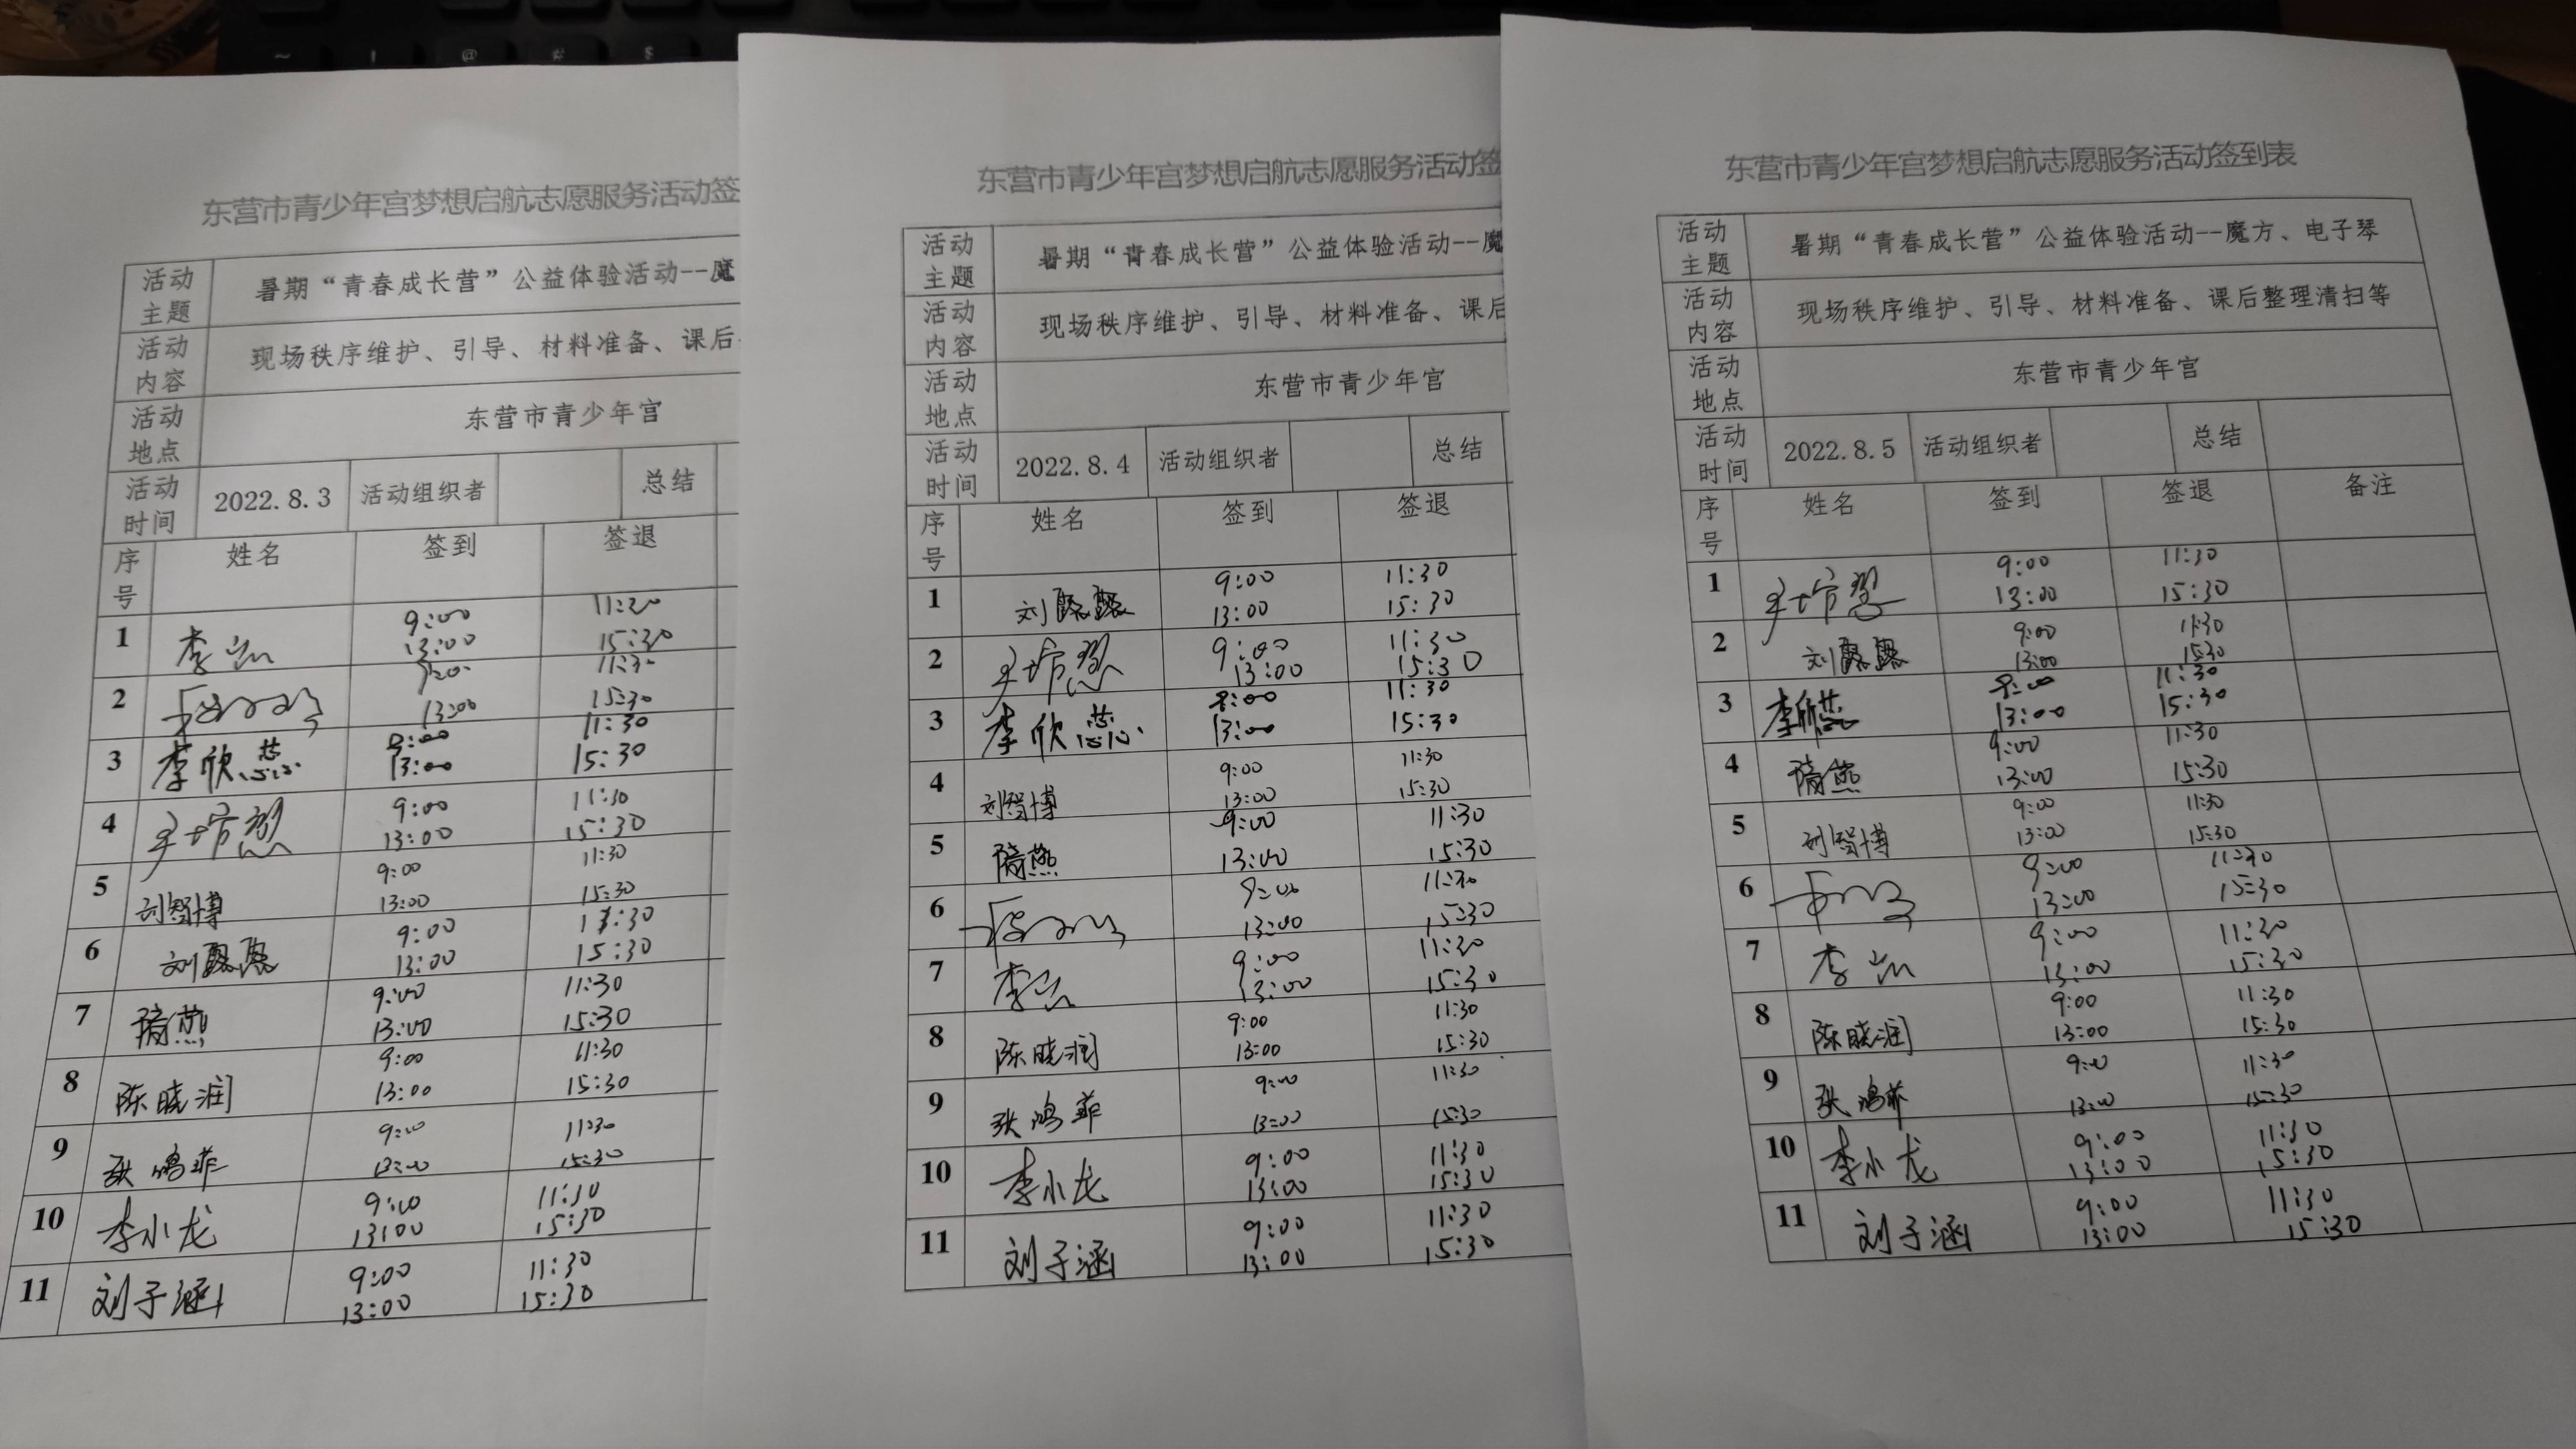 东营市青少年宫梦想启航志愿服务活动签
活动主题 暑期“青春成长营”公益体验活动--魔
活动内容 现场秩序维护、引导、材料准备、课后
活动地点 东营市青少年宫
活动时间 2022.8.3 活动组织者 总结
序号 姓名 签到 签退
1 李 9:00 11:30
13:00 15:30
2 9:00 11:30
13:00 15:30
3 李欣蕊 9:00 11:30
13:00 15:30
4 9:00 11:30
13:00 15:30
5 刘智博 9:00 11:30
13:00 15:30
6 刘露露 9:00 11:30
13:00 15:30
7 隋燕 9:00 11:30
13:00 15:30
8 陈晓润 9:00 11:30
13:00 15:30
9 张鸿菲 9:00 11:30
13:00 15:30
10 李小龙 9:00 11:30
13:00 15:30
11 刘子涵 9:00 11:30
13:00 15:30
东营市青少年宫梦想启航志愿服务活动签
活动主题 暑期“青春成长营”公益体验活动--魔
活动内容 现场秩序维护、引导、材料准备、课后
活动地点 东营市青少年宫
活动时间 2022.8.4 活动组织者 总结
序号 姓名 签到 签退
1 刘露露 9:00 11:30
13:00 15:30
2 9:00 11:30
13:00 15:30
3 李欣蕊 9:00 11:30
13:00 15:30
4 刘智博 9:00 11:30
13:00 15:30
5 隋燕 9:00 11:30
13:00 15:30
6 9:00 11:30
13:00 15:30
7 李 9:00 11:30
13:00 15:30
8 陈晓润 9:00 11:30
13:00 15:30
9 张鸿菲 9:00 11:30
13:00 15:30
10 李小龙 9:00 11:30
13:00 15:30
11 刘子涵 9:00 11:30
13:00 15:30
东营市青少年宫梦想启航志愿服务活动签到表
活动主题 暑期“青春成长营”公益体验活动--魔方、电子琴
活动内容 现场秩序维护、引导、材料准备、课后整理清扫等
活动地点 东营市青少年宫
活动时间 2022.8.5 活动组织者 总结
序号 姓名 签到 签退 备注
1 9:00 11:30
13:00 15:30
2 刘露露 9:00 11:30
13:00 15:30
3 李欣蕊 9:00 11:30
13:00 15:30
4 隋燕 9:00 11:30
13:00 15:30
5 刘智博 9:00 11:30
13:00 15:30
6 9:00 11:30
13:00 15:30
7 李 9:00 11:30
13:00 15:30
8 陈晓润 9:00 11:30
13:00 15:30
9 张鸿菲 9:00 11:30
13:00 15:30
10 李小龙 9:00 11:30
13:00 15:30
11 刘子涵 9:00 11:30
13:00 15:30